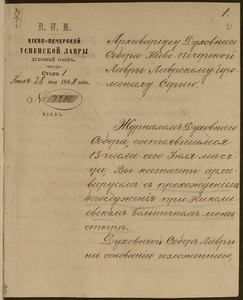 В. П. М.
КІЕВО-ПЕЧЕРСКОЙ
УСПЕНСКОЙ ЛАВРЫ
ДУХОВНЫЙ СОБОРЪ.
Столъ 1
Іюля 26 дня 1898 года.
№
КІЕВЪ.
1.
Архиваріусу Духовнаго
Собора Кіево-Печерской
Лавры Лаврскому іеро
монаху Сергію.
Журналомъ Духовнаго
Собора, состоявшимся
15 числа сего Іюля мѣся
ца, Вы назначены архи-
варіусомъ съ прохожденіемъ
богослуженія при Никола
евскомъ больничномъ мона
стырѣ.
Духовный Соборъ Лавры
на основаніи изложеннаго,